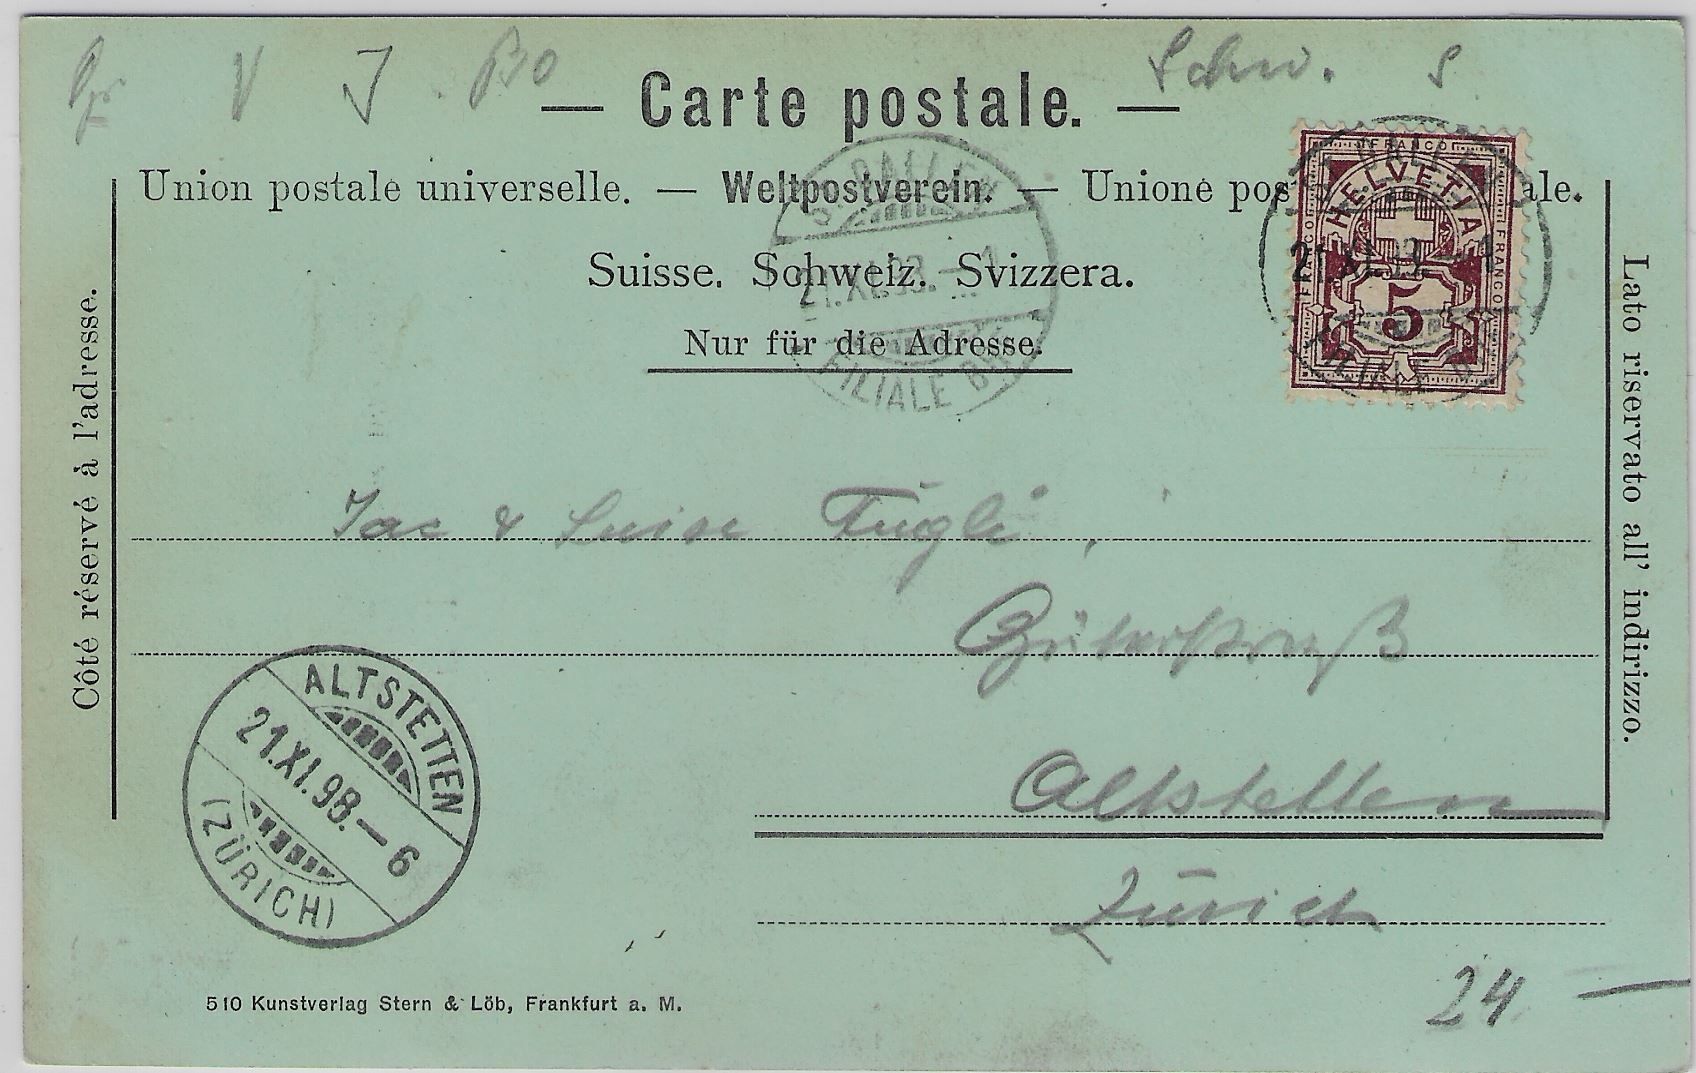 Schw. S
— Carte postale. —
Union postale universelle. — Weltpostverein. — Unione pos ale.
Suisse. Schweiz. Svizzera.
Nur für die Adresse.
Côté réservé à l'adresse.
Lato riservato all' indirizzo.
FRANCO
FRANCO
FRANCO
HELVETIA
5
ST. GALLEN
21.XI.98.–1
FILIALE
ST. GALLEN
21.XI.98.–1
FILIALE
Jac & Luise Fügli,
Güterstraß
Altstetten
Zürich
ALTSTETTEN
21.XI.98.–6
(ZÜRICH)
510 Kunstverlag Stern & Löb, Frankfurt a. M.
24 –